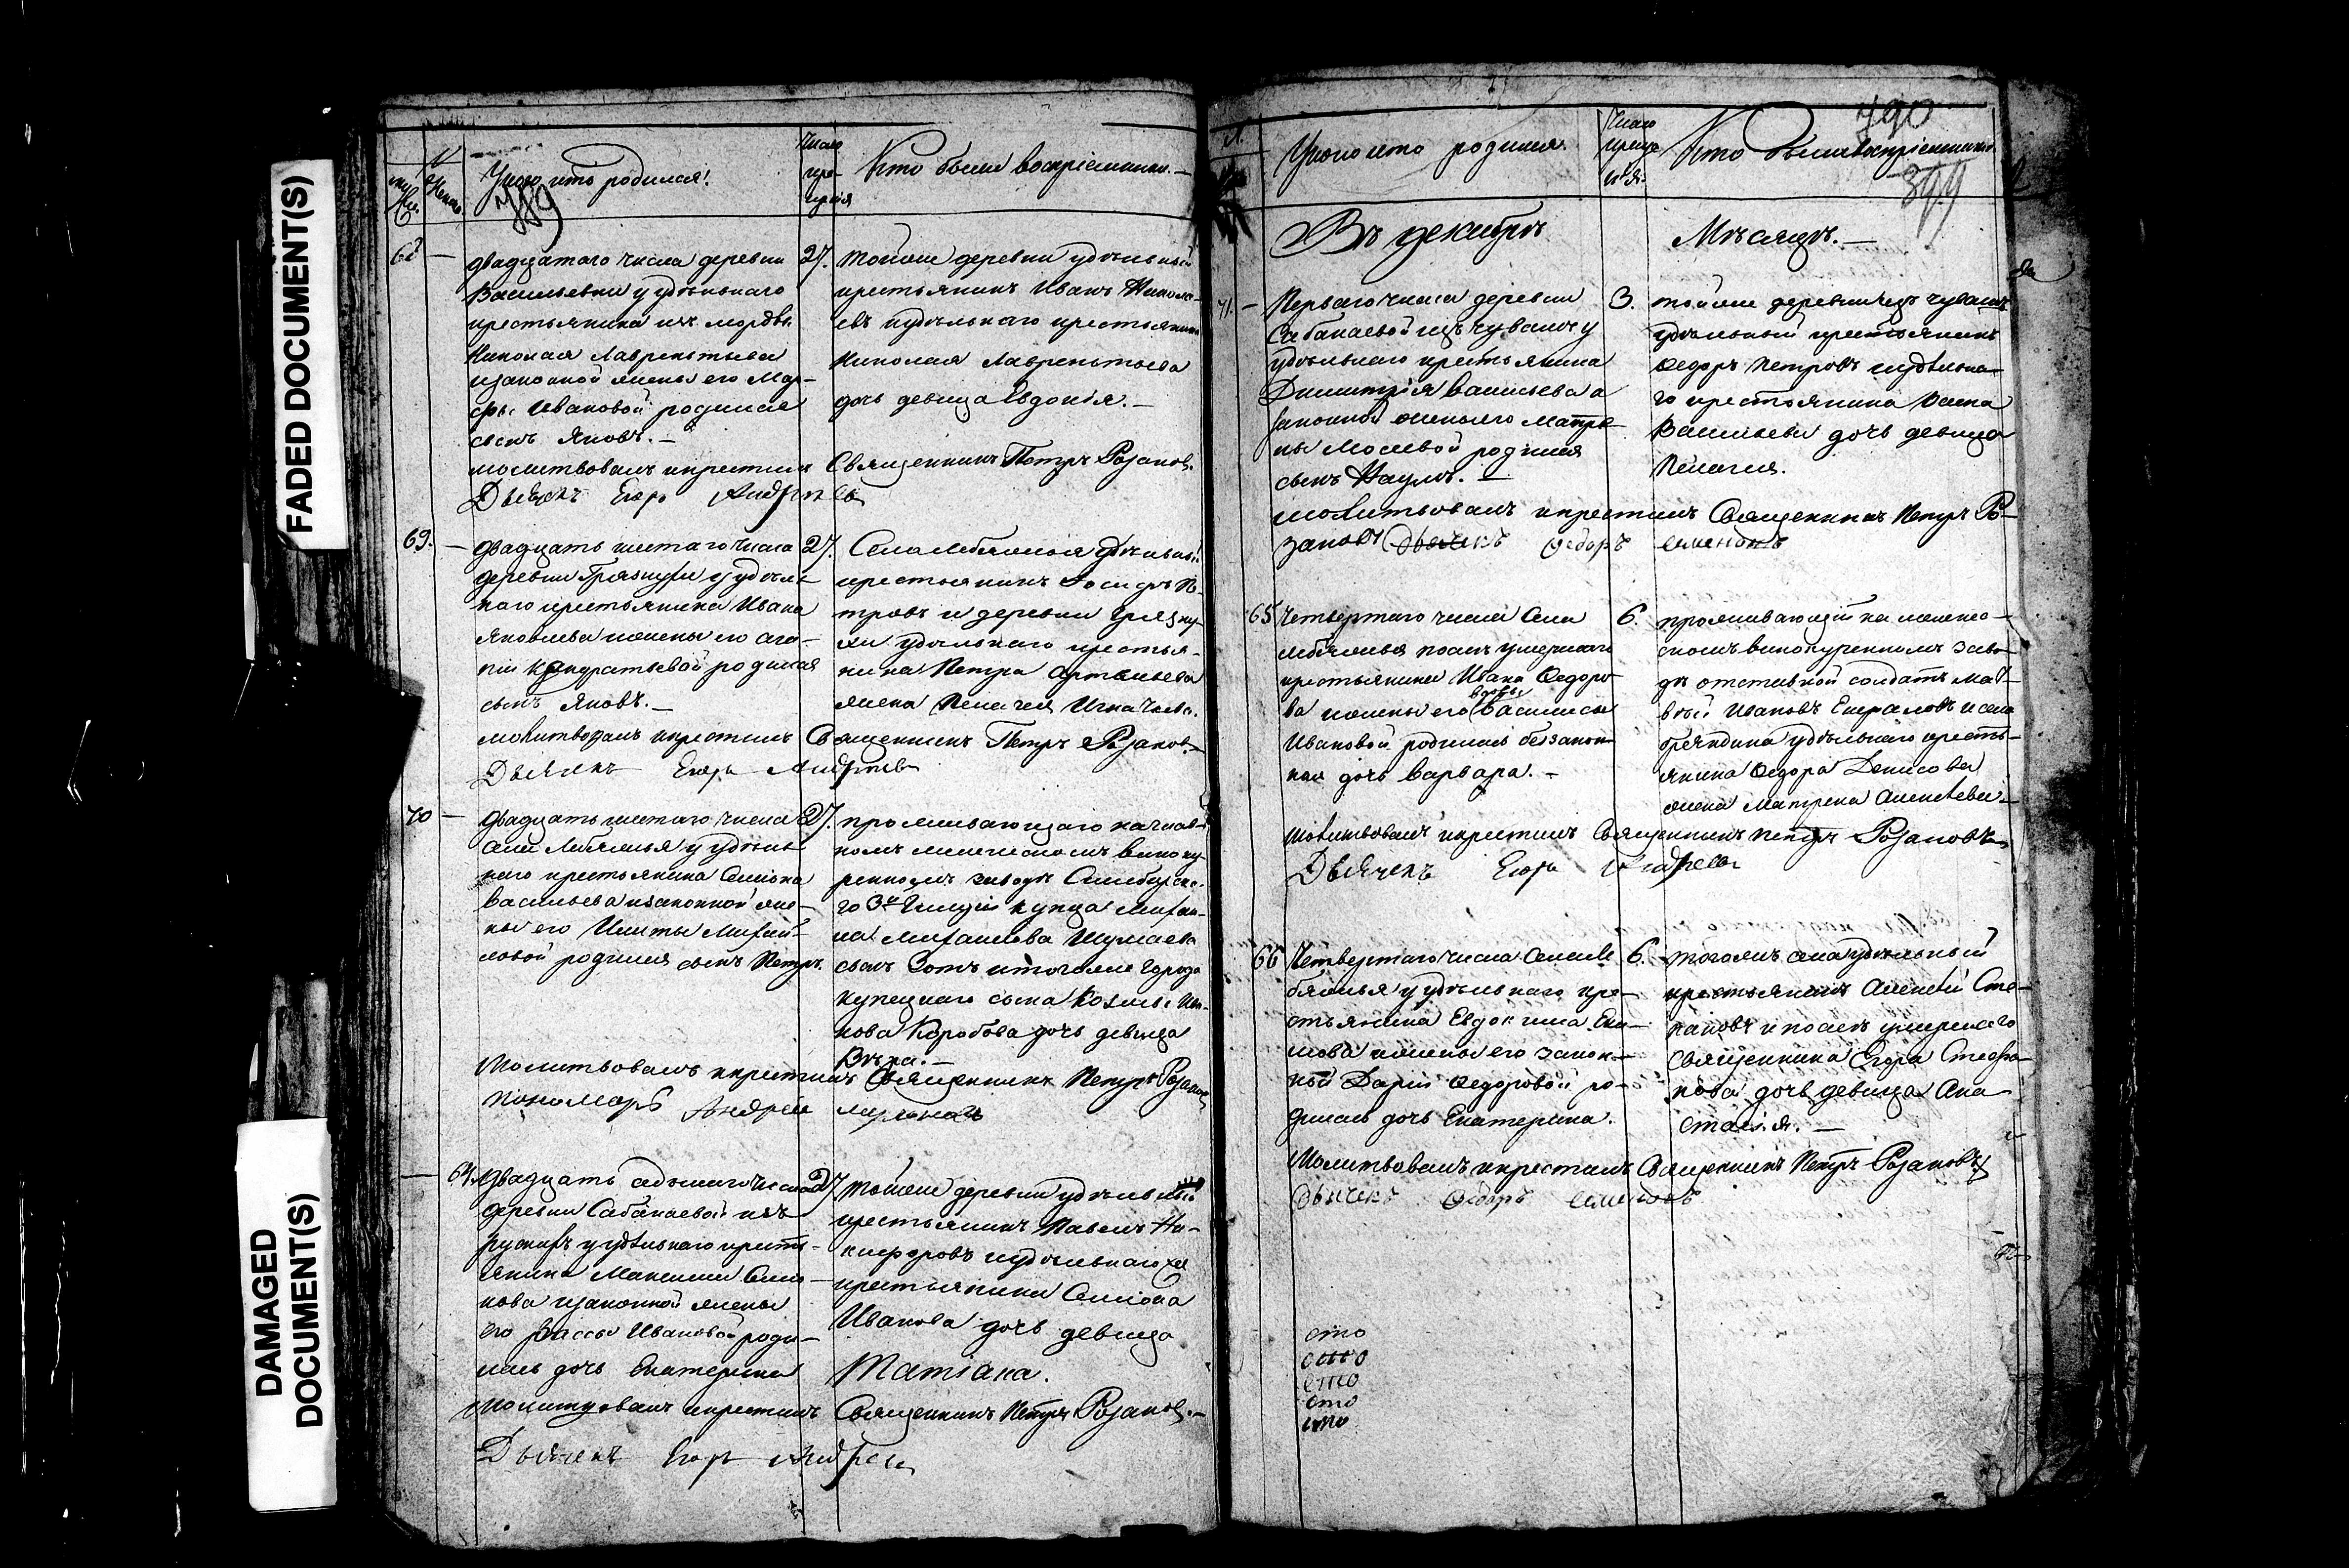 FADED DOCUMENT(S)
DAMAGED
DOCUMENT(S)
У кого кто родился.
789
Число
кре-
щенія
Кто были воспріемники.
68
двадцатаго числа деревни
Васильевки у удѣльнаго
крестьянина изъ мордвы
Николая Лаврентьева
и законной жены его Мар-
фы Ивановой родился
сынъ Яковъ.
27.
тойже деревни удѣльный
крестьянинъ Иванъ Никола-
евъ и удѣльнаго крестьянина
Николая Лаврентьева
дочь девица Евдокія.
молитвовалъ и крестилъ Священникъ Петръ Розановъ
Дьячекъ Егоръ Андреевъ
69.
двадцать шестаго числа
деревни Грязнухи у удѣль-
наго крестьянина Ивана
Яковлева и жены его Ага-
піи Кандратьевой родился
сынъ Яковъ.
27.
Села Лебяжья удѣльный
крестьянинъ Пе-
тровъ и деревни Грязну-
хи удѣльнаго крестья-
нина Петра Артемьева
жена Пелагея Игнатьева.
молитвовалъ и крестилъ Священникъ Петръ Розановъ
Дьячекъ Егоръ Андреевъ
70
двадцать шестаго числа
села Лебяжья у удѣль-
наго крестьянина Семіона
Васильева и законной же-
ны его Улиты Михай-
ловой родился сынъ Петръ.
27.
проживающаго на
виноку-
ренномъ заводѣ Симбирска-
го 3й Гильдіи купца Михаи-
ла Михайлова Шумаева
сынъ Зотъ и тогоже города
купецкаго сына Козмы Ива-
нова Коробова дочь девица
Вѣра.
Молитвовалъ и крестилъ Священникъ Петръ Розановъ
Пономарь Андрей
64.
двадцать седьмаго числа
деревни Сабакаевой изъ
русскихъ у удѣльнаго кресть-
янина Максима Семио-
нова и законной жены
его Вассы Ивановой роди-
лась дочь Екатерина
27
тойже деревни удѣльный
крестьянинъ Павелъ Ни-
кифоровъ и удѣльнаго
крестьянина Семіона
Иванова дочь девица
Татіана.
Молитвовалъ и крестилъ Священникъ Петръ Розановъ
Дьячекъ Егоръ Андреевъ
790
399
У кого кто родился
Число
креще-
нія
Кто были воспріемники
Въ декабрѣ Мѣсяцѣ.
71.
Перваго числа деревни
Сабакаевой изъ чувашъ у
удѣльнаго крестьянина
Димитрія Васильева и
законной жены его Матре-
ны Мосеевой родился
сынъ Наумъ.
3.
тойже деревни изъ чувашъ
удѣльный крестьянинъ
Федоръ Петровъ и удѣльна-
го крестьянина
Васильева дочь девица
Пелагея.
молитвовалъ и крестилъ Священникъ Петръ Ро-
зановъ Дьячекъ Федоръ Семеновъ
65
Четвертаго числа села
Лебяжья послѣ умершаго
крестьянина Ивана Федоро-
ва жены его вдовы Василисы
Ивановой родилась беззакон-
ная дочь Варвара.
6.
проживающій на
винокуренномъ заво-
дѣ отставной солдатъ Мат-
вѣй Ивановъ и села
удѣльнаго кресть-
янина Федора Денисова
жена Матрена Алексѣева
Молитвовалъ и крестилъ Священникъ Петръ Розановъ
Дьячекъ Егоръ Андреевъ
66
Четвертаго числа села Ле-
бяжья у удѣльнаго кре-
стьянина Евдокима Еки-
мова и жены его закон-
ной Дарьи Федоровой ро-
дилась дочь Екатерина.
6.
тогожъ села удѣльный
крестьянинъ Алексѣй Сте-
пановъ и послѣ умершаго
Священника Егора Стефа-
нова дочь девица Ана-
стасія.
Молитвовалъ и крестилъ Священникъ Петръ Розановъ
Дьячекъ Федоръ Семеновъ